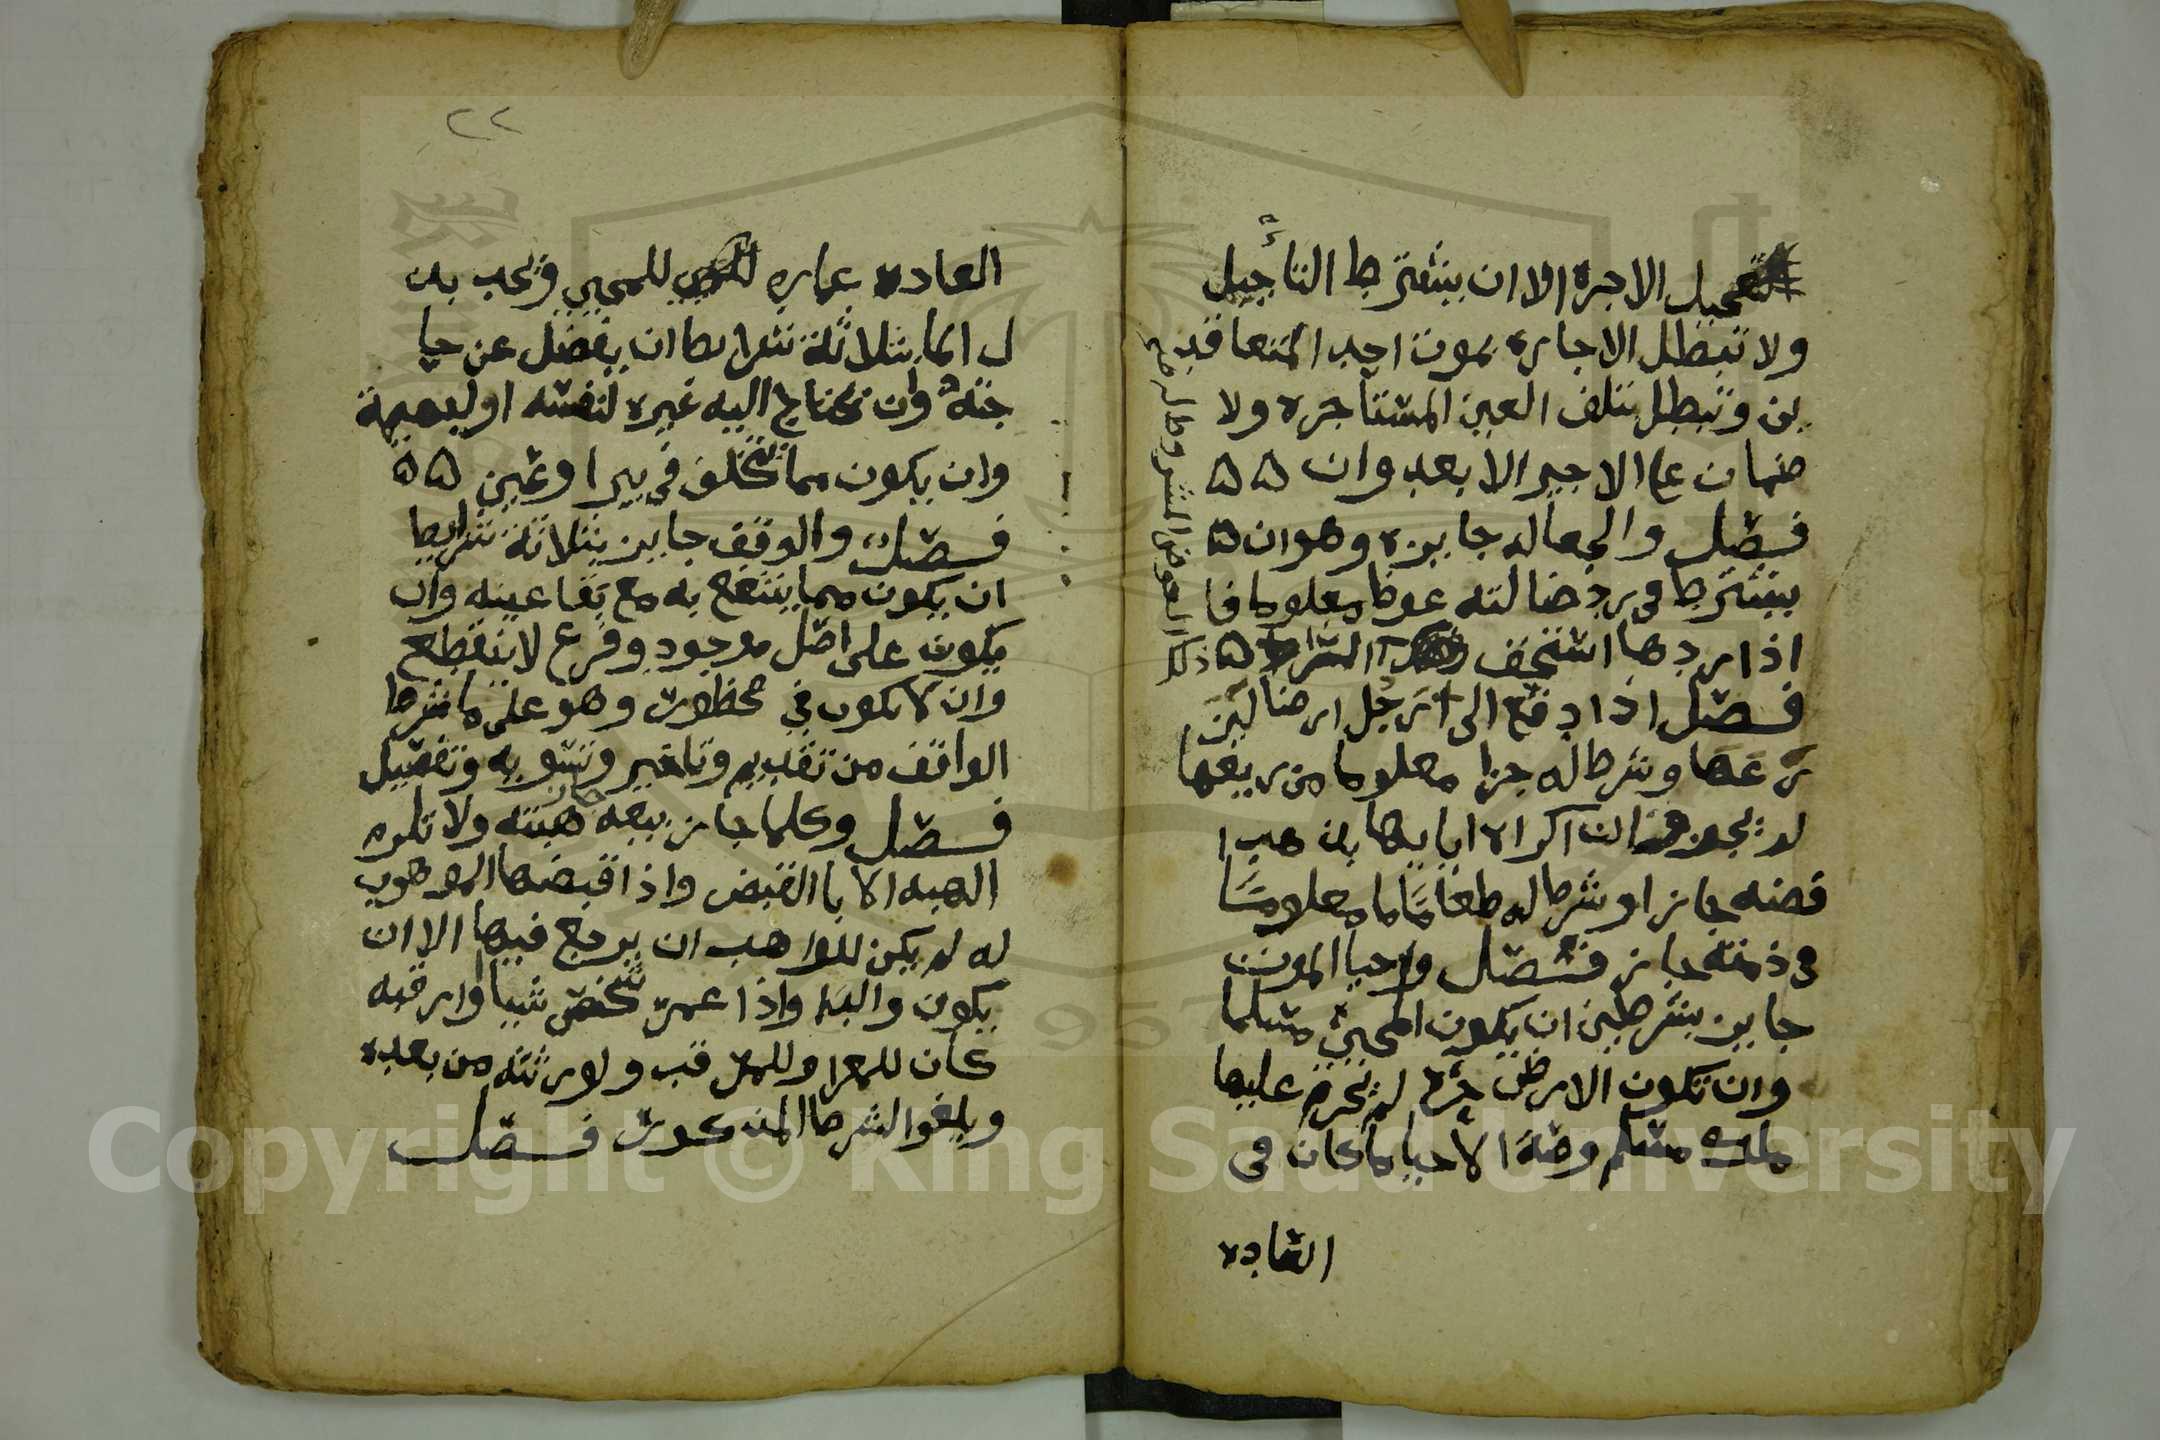 تعجيل الاجرة الا ان يشترط التأجيل
ولا تبطل الاجاره بموت احد المتعاقد
ين وتبطل بتلف العين المستاجره ولا
ضمان على الاجير الا بعدوان ه ه
فصل والجعاله جايزه وهو ان ه
يشترط في رد ضالته عوضا معلوما فا
اذا ردها استحق الشرط ه
ذلك العوض المشروط
فصل اذا دفع الى رجل ارضا ليز
رعها وشرط له جزا معلوما من ريعها
لم يجز وان اكراه اياها بذهب ا
فضه جاز او شرط له طعاما معلوما
في ذمته جاز فصل واحيا الموت
جايز بشرطين ان يكون المحيي مسلما
وان تكون الارض حرة لم يجر عليها
ملك مسلم وصفة الاحيا ما كان في
العاده
٢٢
العاده عماره للمحيي ويجب بذ
ل الما بثلاثة شرايط ان يفضل عن حا
جته وان يحتاج اليه غيره لنفسه او لبهيمة
وان يكون مما يستخلف في بير او عين ه ه
فصل والوقف جايز بثلاثة شرايط
ان يكون مما ينتفع به مع بقا عينه وان
يكون على اصل موجود وفرع لا ينقطع
وان لا يكون في محظور وهو على ما شرط
الواقف من تقديم وتاخير وتسويه وتفضيل
فصل وكلما جاز بيعه جاز هبته ولا تلزم
الهبه الا بالقبض واذا قبضها الموهوب
له لم يكن للواهب ان يرجع فيها الا ان
يكون والدا واذا عمر شخص شيا او ارقبه
كان للمعمر او للمرقب ولورثته من بعده
ويلغوا الشرط المذكور فصل
Copyright © King Saud University
1957